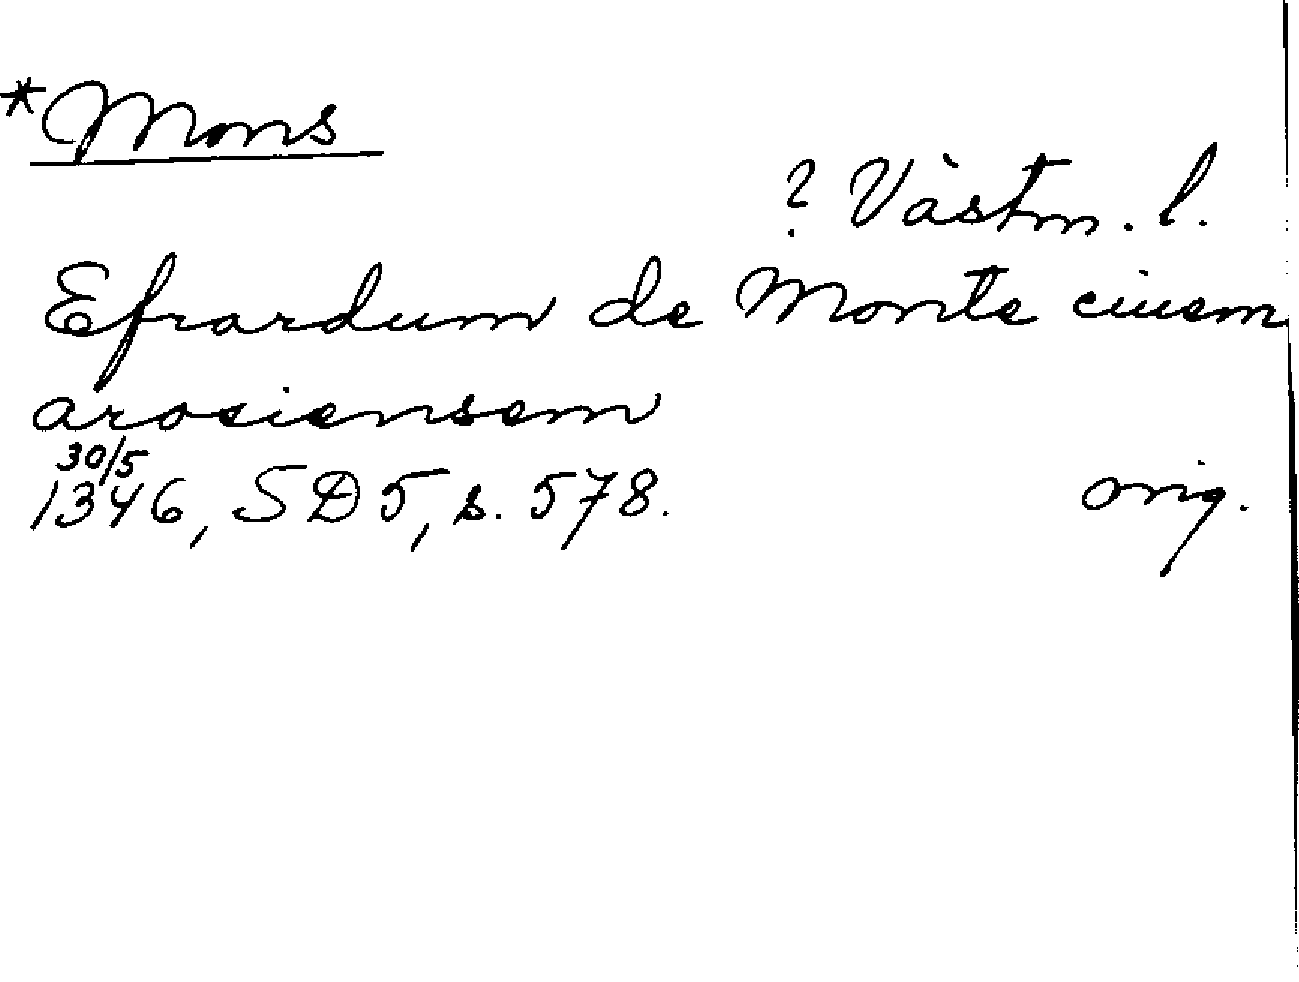 *Mons
? Västm. l.
Efrardum de Monte ciuem
arosiensem
30/5
1346, SD5, s. 578. orig.